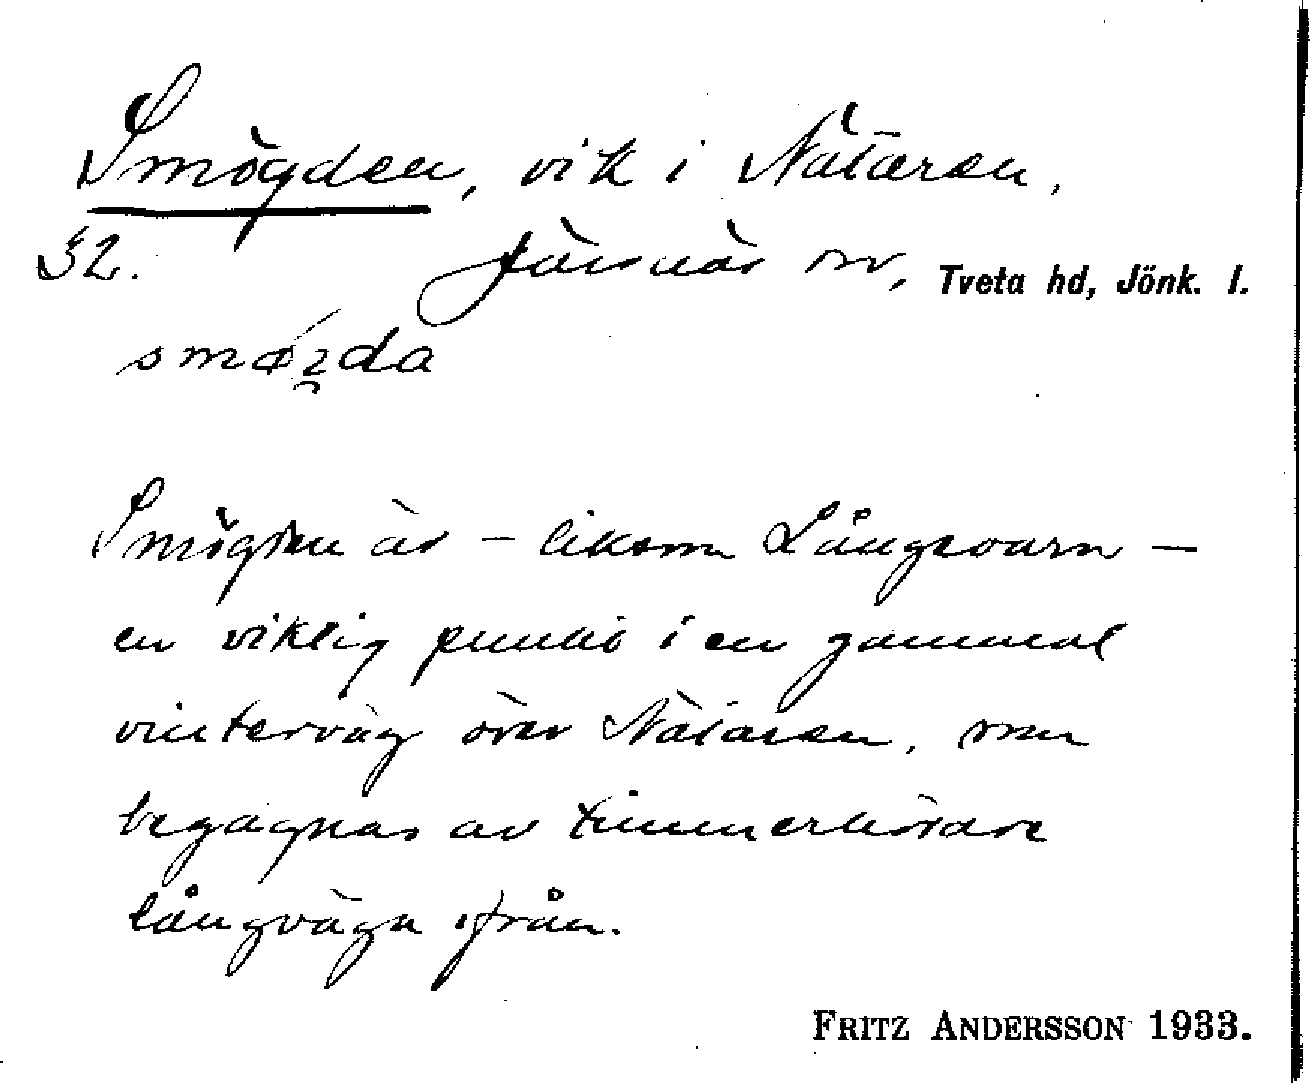 Smögden, vik i Nätaren.
§2. Järsnäs sn, Tveta hd, Jönk. l.
Smögden är – liksom Långsvarn –
en viktig punkt i en gammal
vinterväg över Nätaren, som
begagnas av timmerkörare
långväga ifrån.
FRITZ ANDERSSON 1933.